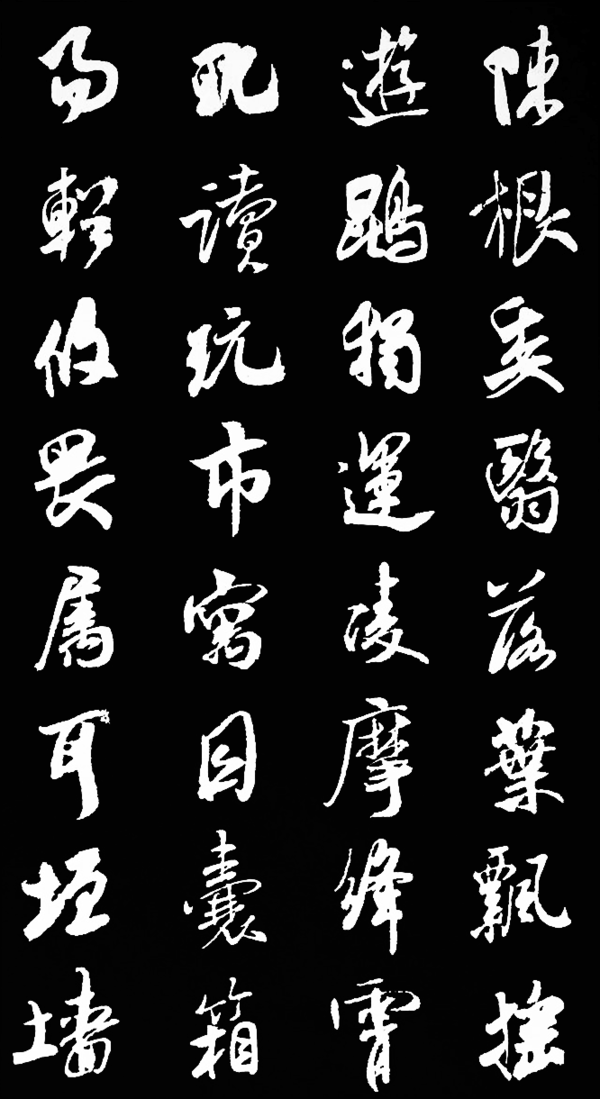 陳根委翳落葉飄搖
遊鵾獨運凌摩絳霄
耽讀玩市寓目囊箱
易輶攸畏属耳垣墙